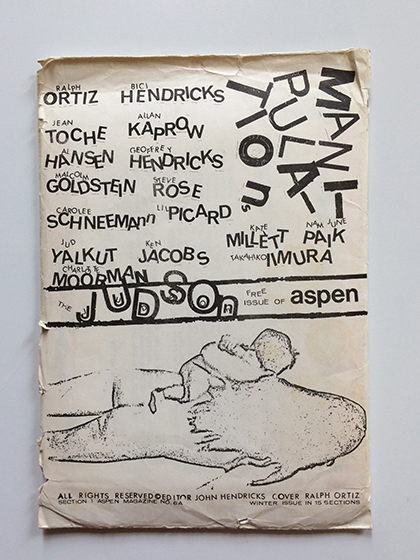 MANIPULATIONS
RALPH ORTIZ
BICI HENDRICKS
JEAN TOCHE
ALLAN KAPROW
AL HANSEN
GEOFFREY HENDRICKS
MALCOLM GOLDSTEIN
STEVE ROSE
CAROLEE SCHNEEMANN
LIL PICARD
KATE MILLETT
NAM JUNE PAIK
JUD YALKUT
KEN JACOBS
TAKAHIKO IIMURA
CHARLOTTE MOORMAN
THE JUDSON FREE ISSUE OF aspen
ALL RIGHTS RESERVED © EDITOR JOHN HENDRICKS COVER RALPH ORTIZ
SECTION 1 ASPEN MAGAZINE NO. 6A WINTER ISSUE IN 15 SECTIONS